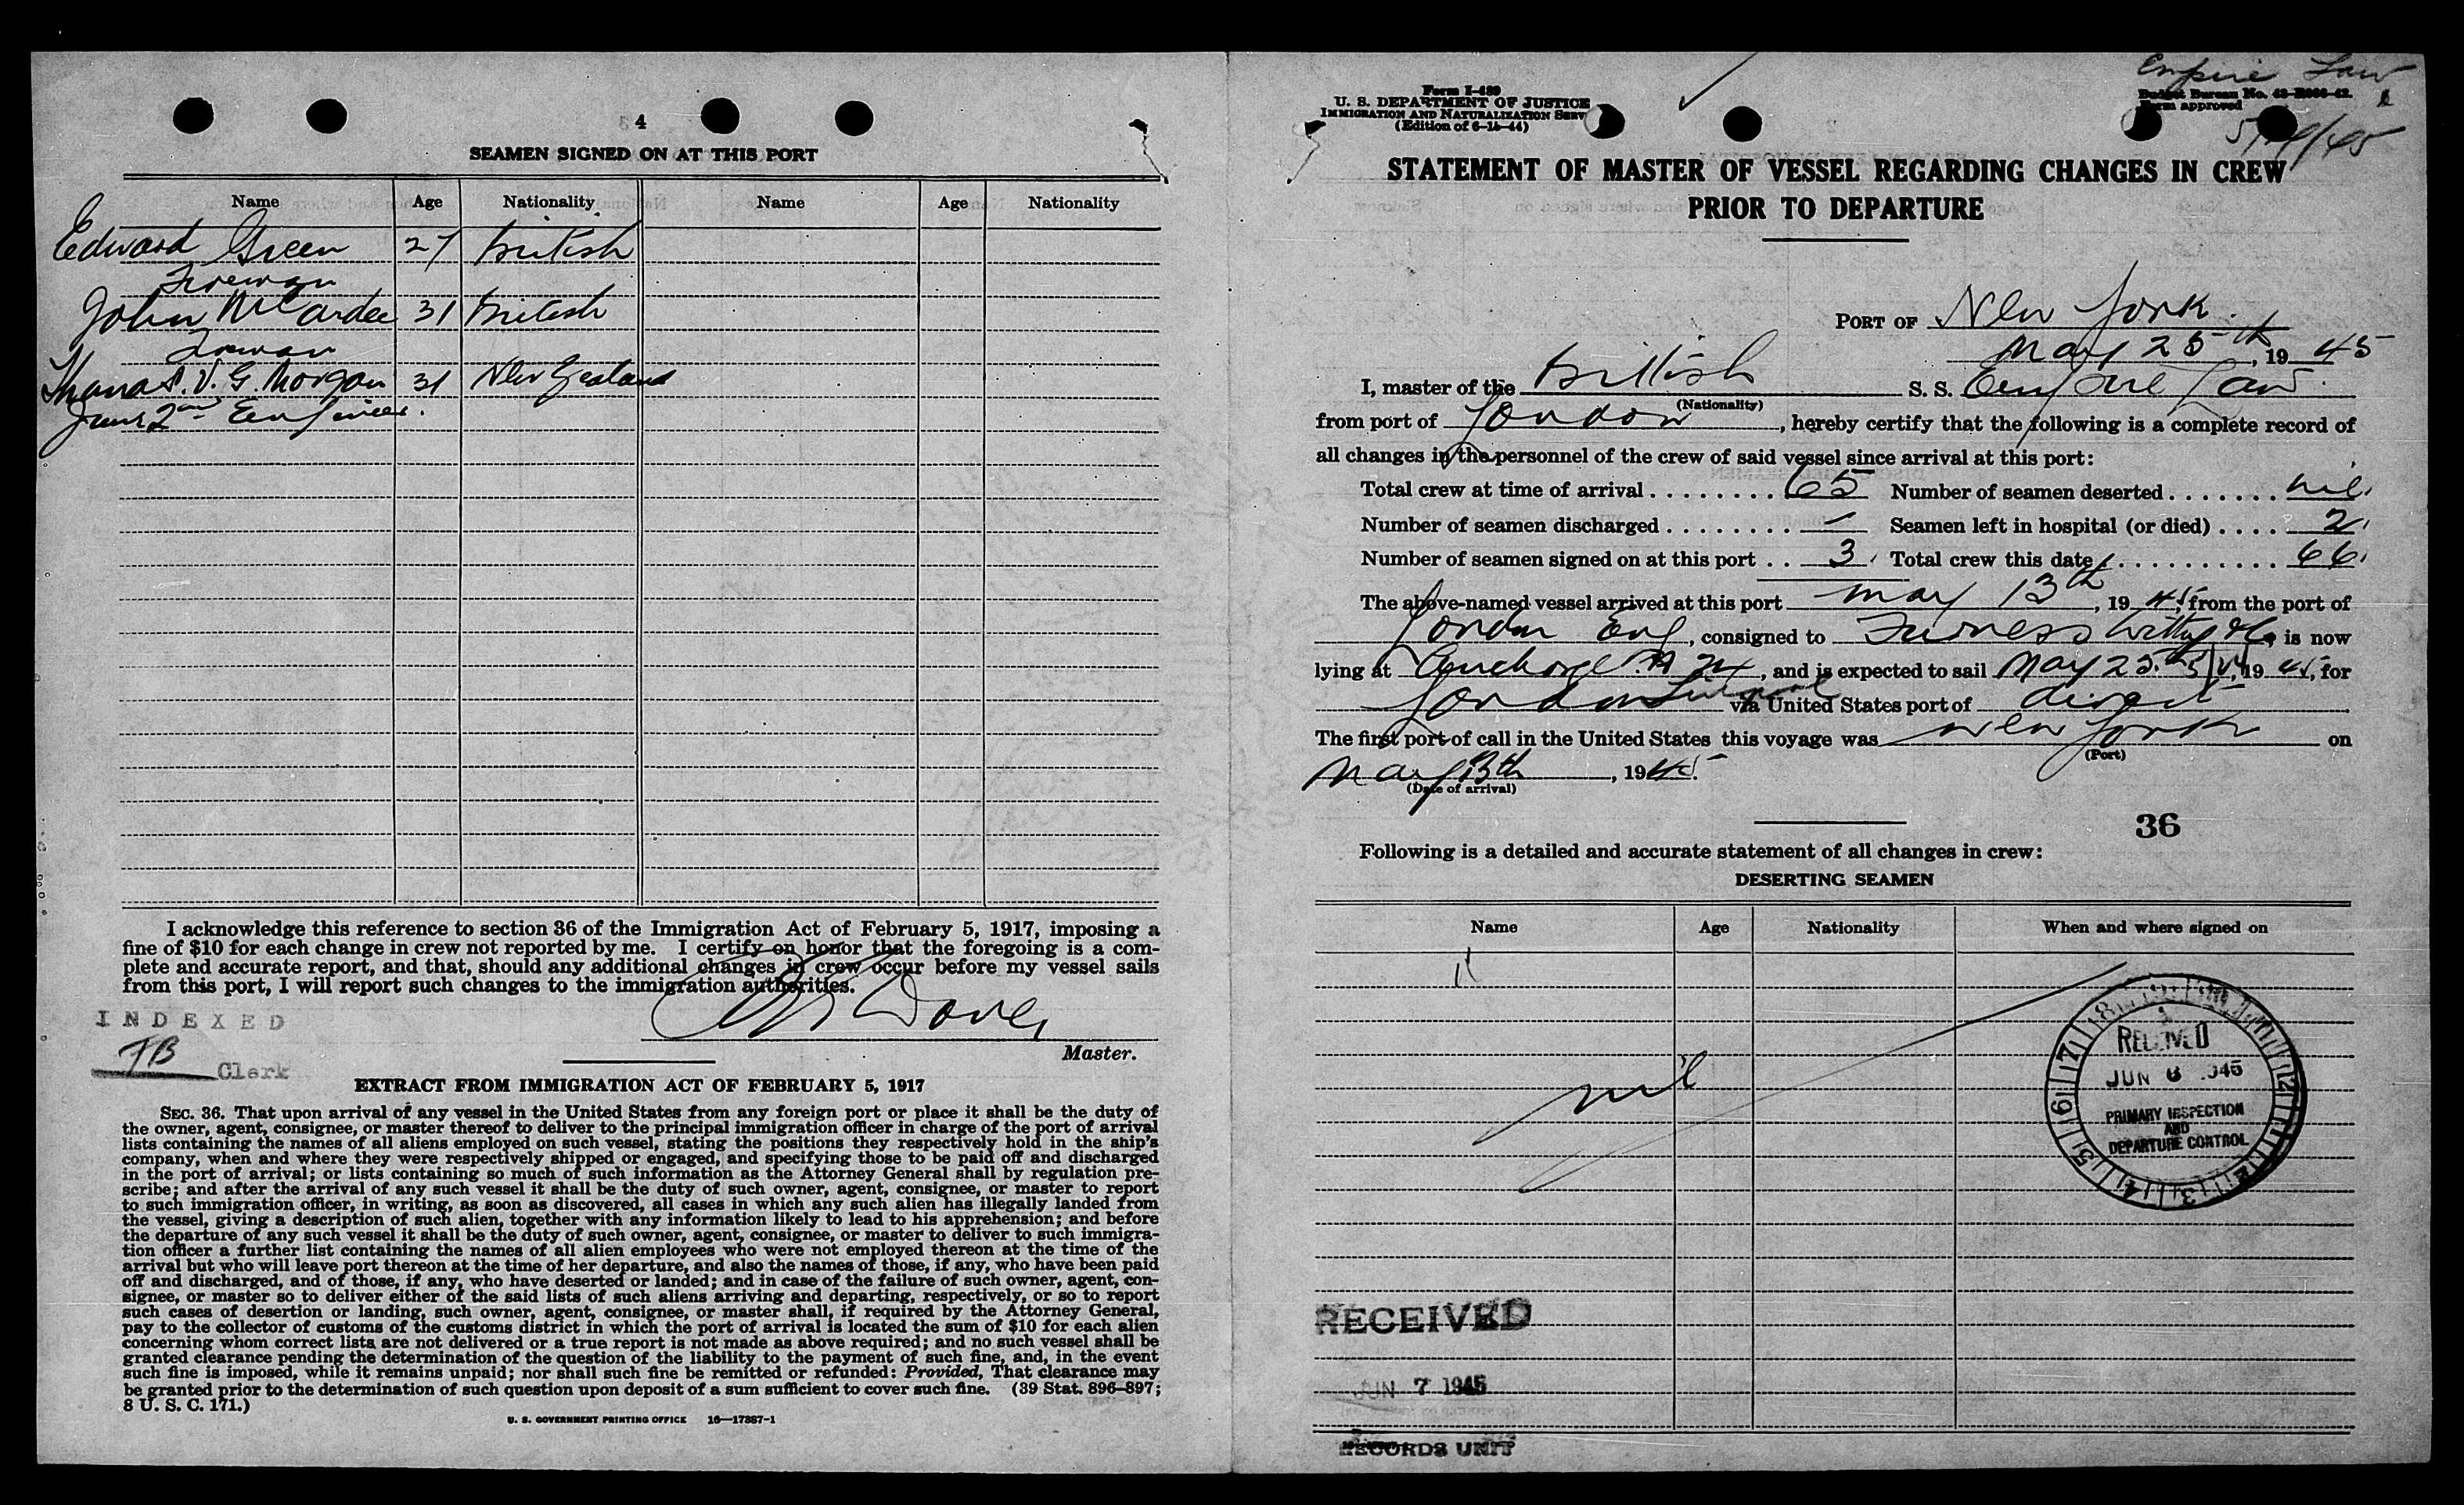 4
SEAMEN SIGNED ON AT THIS PORT
Name Age Nationality Name Age Nationality
Edward Green 27 British
Fireman
John McArdee 31 British
Fireman
Thomas. V. G. Morgan 31 New Zealand
Junr 2nd Engineer.
I acknowledge this reference to section 36 of the Immigration Act of February 5, 1917, imposing a
fine of $10 for each change in crew not reported by me. I certify on honor that the foregoing is a com-
plete and accurate report, and that, should any additional changes in crew occur before my vessel sails
from this port, I will report such changes to the immigration authorities.
INDEXED
TB
Clerk
Master.
EXTRACT FROM IMMIGRATION ACT OF FEBRUARY 5, 1917
SEC. 36. That upon arrival of any vessel in the United States from any foreign port or place it shall be the duty of
the owner, agent, consignee, or master thereof to deliver to the principal immigration officer in charge of the port of arrival
lists containing the names of all aliens employed on such vessel, stating the positions they respectively hold in the ship's
company, when and where they were respectively shipped or engaged, and specifying those to be paid off and discharged
in the port of arrival; or lists containing so much of such information as the Attorney General shall by regulation pre-
scribe; and after the arrival of any such vessel it shall be the duty of such owner, agent, consignee, or master to report
to such immigration officer, in writing, as soon as discovered, all cases in which any such alien has illegally landed from
the vessel, giving a description of such alien, together with any information likely to lead to his apprehension; and before
the departure of any such vessel it shall be the duty of such owner, agent, consignee, or master to deliver to such immigra-
tion officer a further list containing the names of all alien employees who were not employed thereon at the time of the
arrival but who will leave port thereon at the time of her departure, and also the names of those, if any, who have been paid
off and discharged, and of those, if any, who have deserted or landed; and in case of the failure of such owner, agent, con-
signee, or master so to deliver either of the said lists of such aliens arriving and departing, respectively, or so to report
such cases of desertion or landing, such owner, agent, consignee, or master shall, if required by the Attorney General,
pay to the collector of customs of the customs district in which the port of arrival is located the sum of $10 for each alien
concerning whom correct lists are not delivered or a true report is not made as above required; and no such vessel shall be
granted clearance pending the determination of the question of the liability to the payment of such fine, and, in the event
such fine is imposed, while it remains unpaid; nor shall such fine be remitted or refunded: Provided, That clearance may
be granted prior to the determination of such question upon deposit of a sum sufficient to cover such fine. (39 Stat. 896-897;
8 U. S. C. 171.)
U. S. GOVERNMENT PRINTING OFFICE 16—17387-1
Empire Law
Form I-489
U. S. DEPARTMENT OF JUSTICE
IMMIGRATION AND NATURALIZATION SERV
(Edition of 6-15-44)
Budget Bureau No. 43-R066-42.
Form approved
STATEMENT OF MASTER OF VESSEL REGARDING CHANGES IN CREW
PRIOR TO DEPARTURE
PORT OF New York
May 25th, 19 45
I, master of the British S. S. Empire Law
(Nationality)
from port of London, hereby certify that the following is a complete record of
all changes in the personnel of the crew of said vessel since arrival at this port:
Total crew at time of arrival ........ 65 Number of seamen deserted ....... nil.
Number of seamen discharged ........ - Seamen left in hospital (or died) .... 2.
Number of seamen signed on at this port .. 3. Total crew this date ........... 66.
The above-named vessel arrived at this port May 13th, 19 45, from the port of
London Eng, consigned to Furness Withy & Co, is now
lying at Anchorage, and is expected to sail May 25th, 19 45, for
London Liverpool via United States port of direct
The first port of call in the United States this voyage was New York on
(Port)
May 13th, 19 45.
(Date of arrival)
36
Following is a detailed and accurate statement of all changes in crew:
DESERTING SEAMEN
Name Age Nationality When and where signed on
nil
RECEIVED
JUN 6 1945
PRIMARY INSPECTION
AND
DEPARTURE CONTROL
RECEIVED
JUN 7 1945
RECORDS UNIT